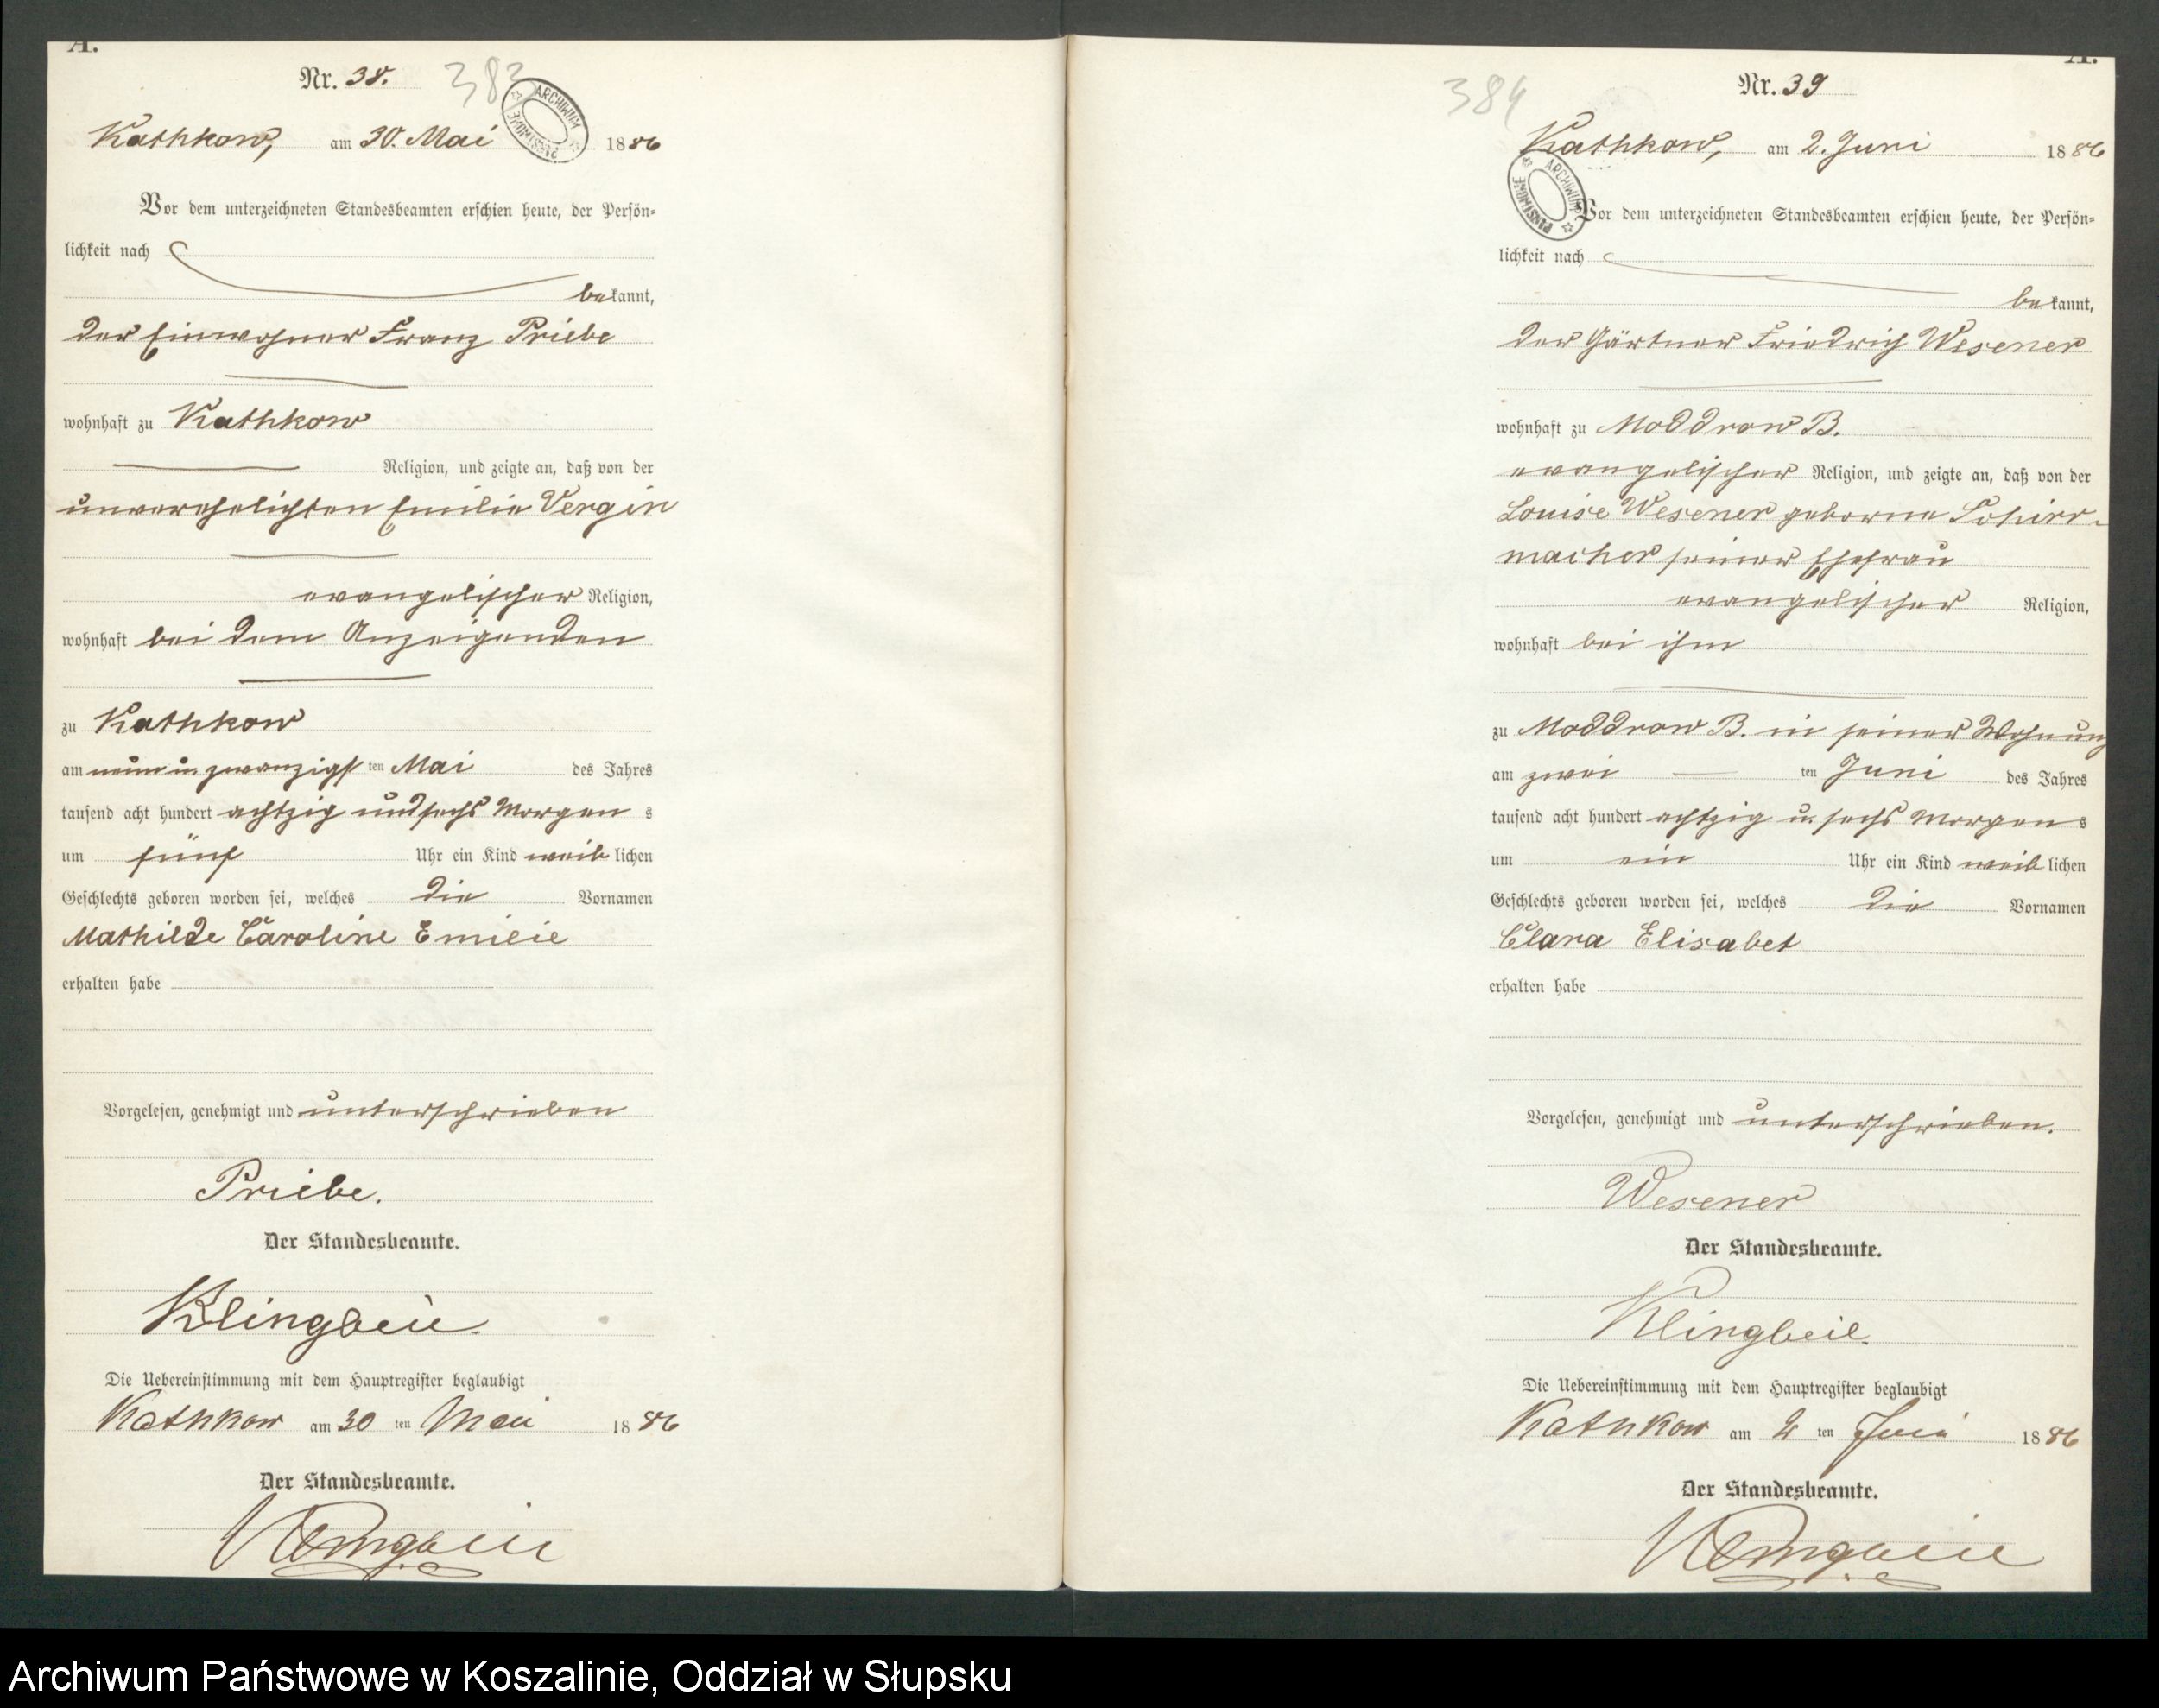 A.
Nr. 38.
383
ARCHIWUM PAŃSTWOWE
Kathkow, am 30. Mai 1886
Vor dem unterzeichneten Standesbeamten erschien heute, der Persön-
lichkeit nach
bekannt,
der Einwohner Franz Priebe
wohnhaft zu Kathkow
Religion, und zeigte an, daß von der
unverehelichten Emilie Vergin
evangelischer Religion,
wohnhaft bei dem Anzeigenden
zu Kathkow
am neun u. zwanzigsten Mai des Jahres
tausend acht hundert achtzig und sechs Morgens
um fünf Uhr ein Kind weiblichen
Geschlechts geboren worden sei, welches die Vornamen
Mathilde Caroline Emilie
erhalten habe
Vorgelesen, genehmigt und unterschrieben
Priebe.
Der Standesbeamte.
Klingbeil.
Die Uebereinstimmung mit dem Hauptregister beglaubigt
Kathkow am 30 ten Mai 1886
Der Standesbeamte.
Klingbeil
A.
Nr. 39
384
Kathkow, am 2. Juni 1886
ARCHIWUM PAŃSTWOWE
Vor dem unterzeichneten Standesbeamten erschien heute, der Persön-
lichkeit nach
bekannt,
der Gärtner Friedrich Wesener
wohnhaft zu Moddrow B.
evangelischer Religion, und zeigte an, daß von der
Louise Wesener geborne Schirr-
macher seiner Ehefrau
evangelischer Religion,
wohnhaft bei ihm
zu Moddrow B. in seiner Wohnung
am zwei ten Juni des Jahres
tausend acht hundert achtzig u. sechs Morgens
um ein Uhr ein Kind weiblichen
Geschlechts geboren worden sei, welches die Vornamen
Clara Elisabet
erhalten habe
Vorgelesen, genehmigt und unterschrieben.
Wesener
Der Standesbeamte.
Klingbeil.
Die Uebereinstimmung mit dem Hauptregister beglaubigt
Kathkow am 2 ten Juni 1886
Der Standesbeamte.
Klingbeil
Archiwum Państwowe w Koszalinie, Oddział w Słupsku